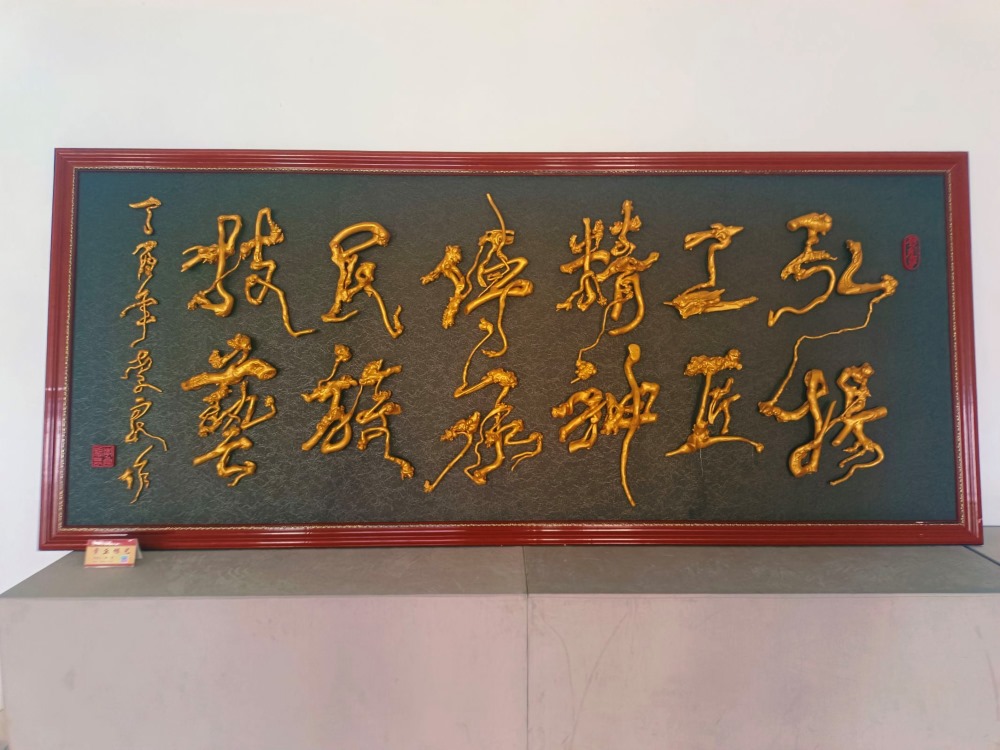 弘揚
工匠
精神
傳承
民族
技藝
丁酉年 作